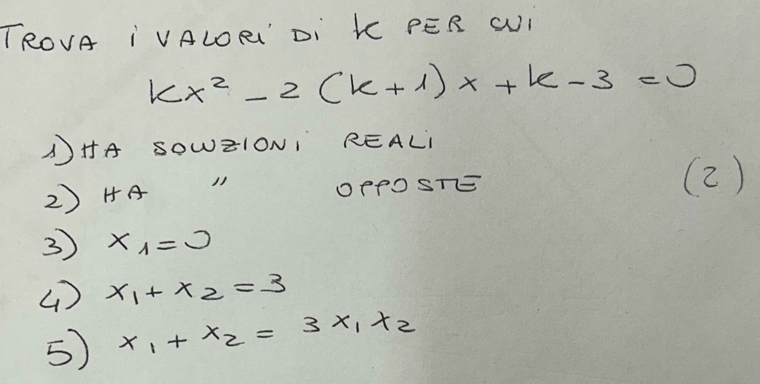 TROVA I VALORI DI K PER CUI
kx² - 2(k+1)x + k - 3 = 0
1) HA SOLUZIONI REALI
2) HA " OPPOSTE (2)
3) x₁ = 0
4) x₁ + x₂ = 3
5) x₁ + x₂ = 3x₁x₂